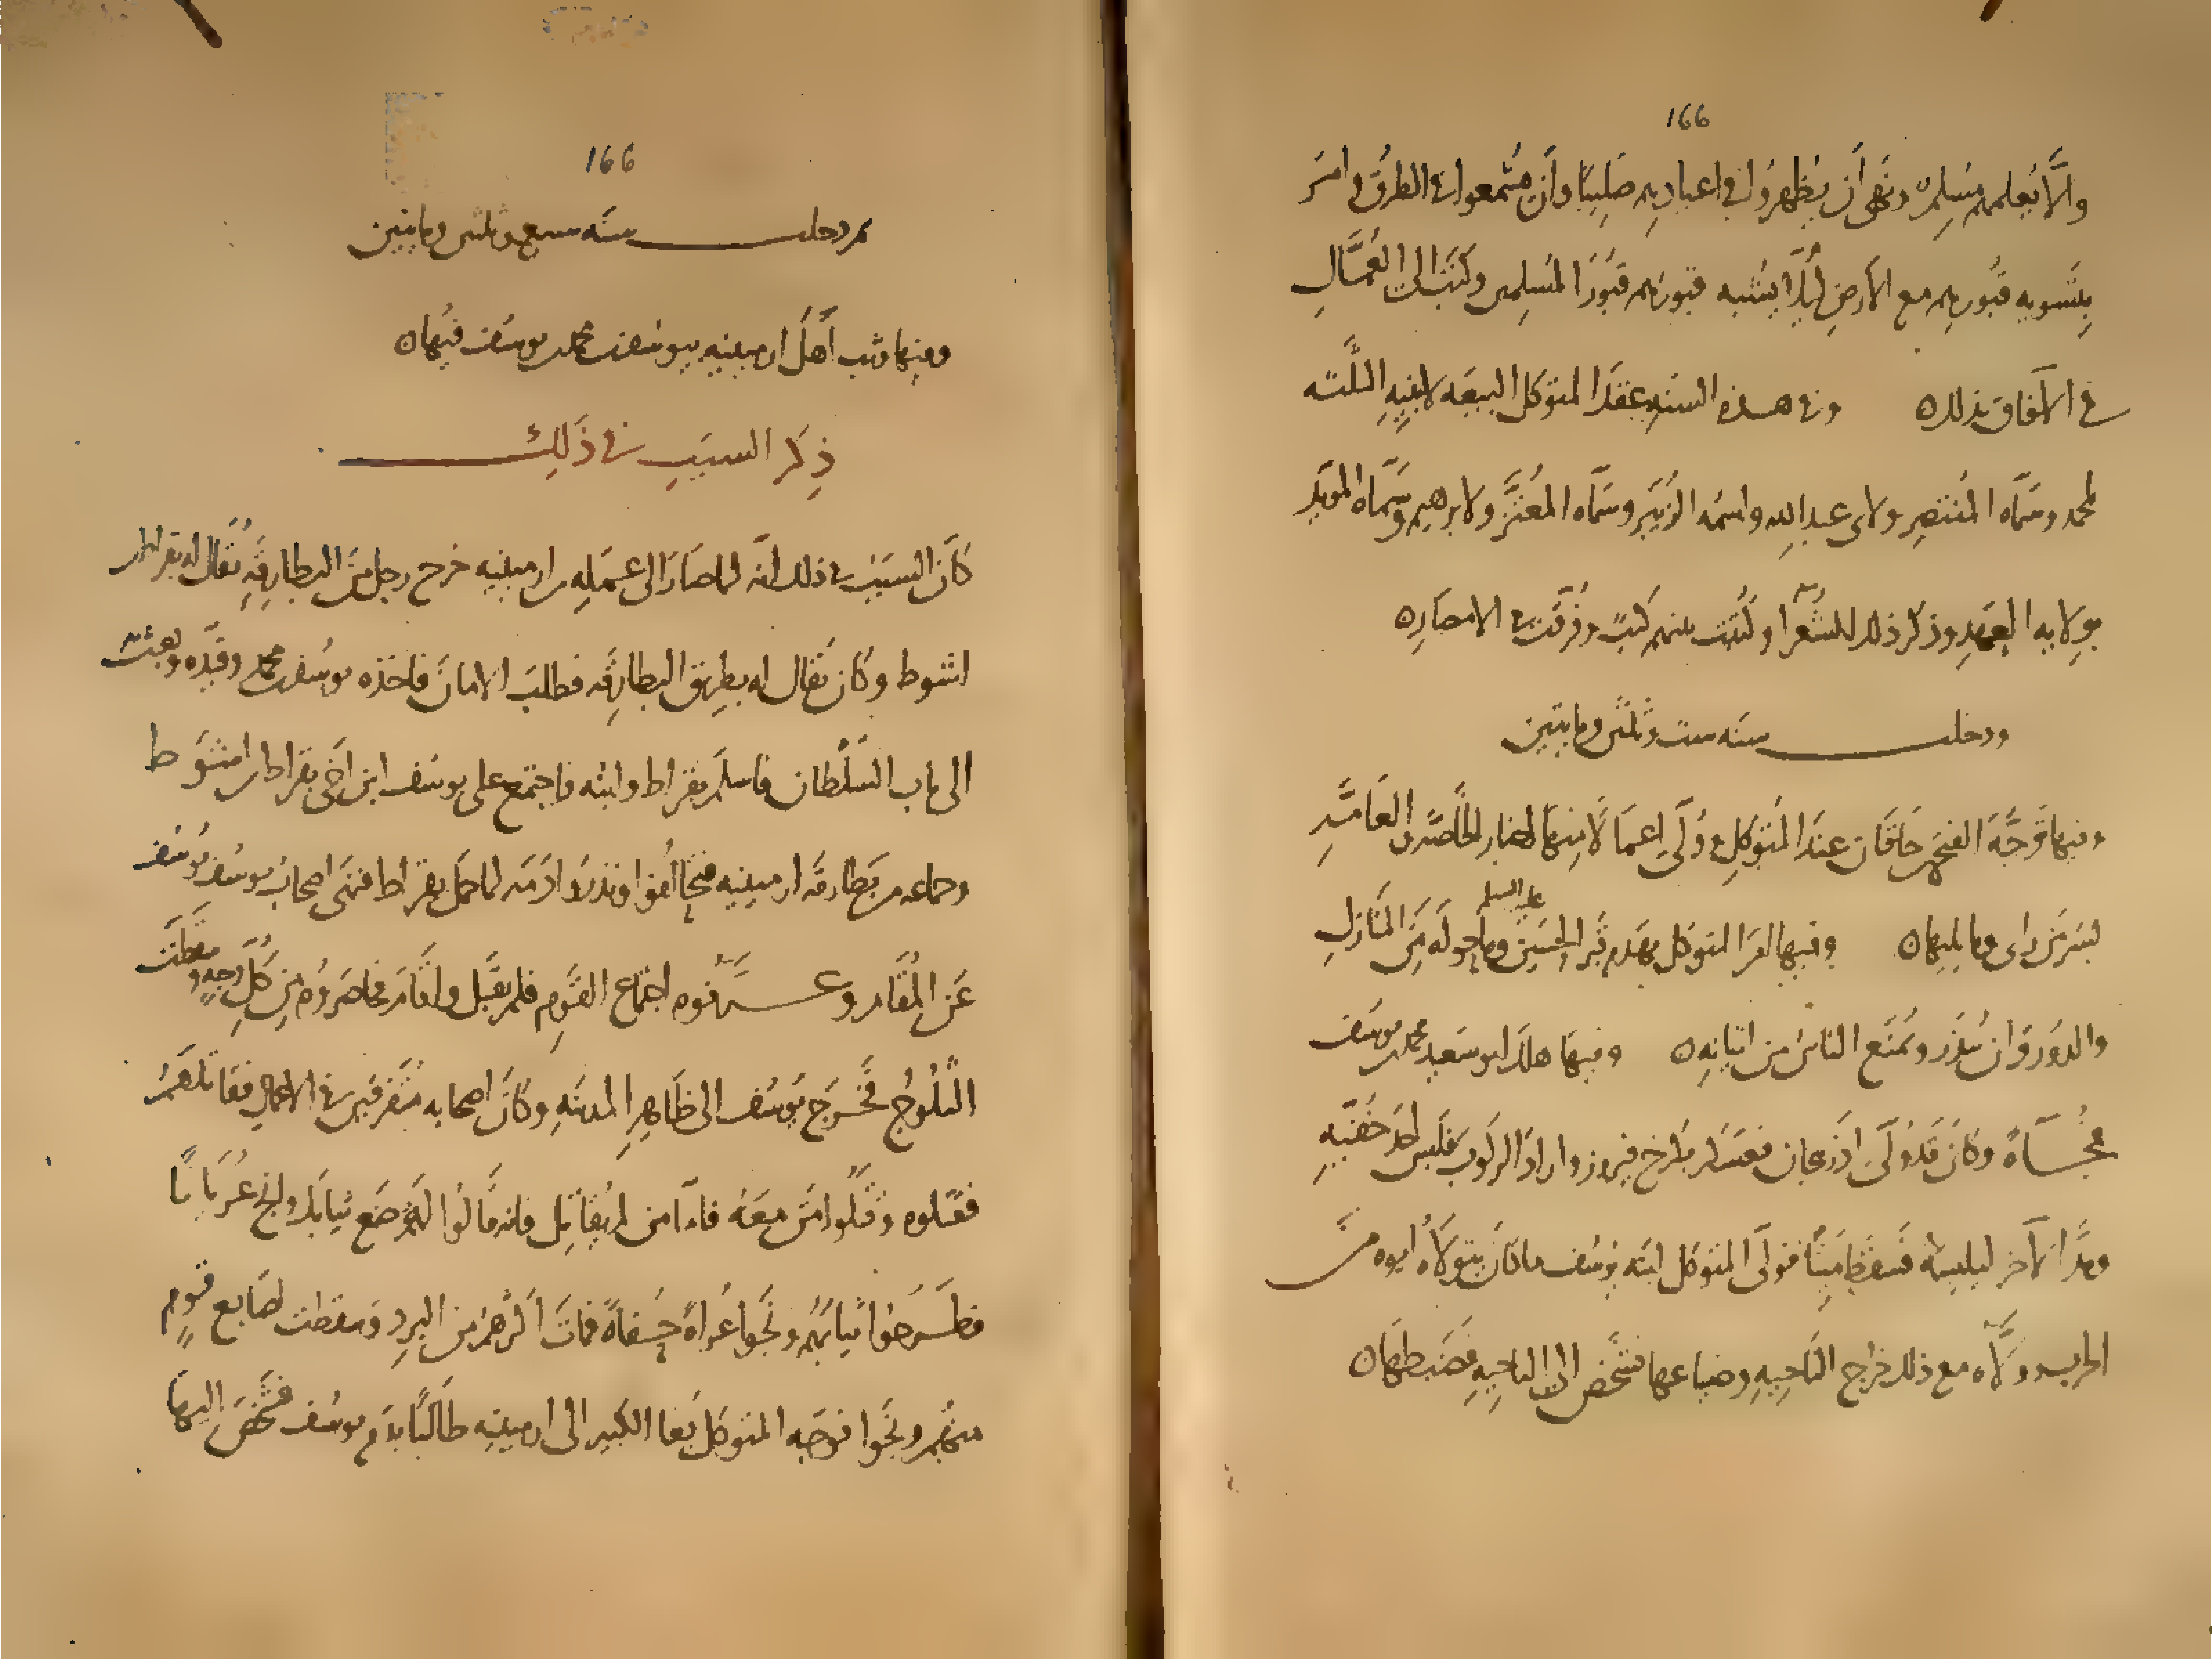 166
وألَّا يُعلمهم مُسلِم ونهى أن يُظهروا في اعيادهم صَلِيبًا وأن يشمعلوا في الطرُق وامَرَ
بِتسويه قبُورهم مع الأرضِ لِيلَّا يشبه قبورهم قبُورَ المُسلِمين وكتَبَ الى العُمَّالِ
في الآفاق بذلك ه وفي هذه السنهِ عقدَ المتوكل البيعَه لابنيهِ الثلثه
لمحمد وسمَّاه المُنتصِر ولابى عبدِ الله واسمُه الزُبَير وسمَّاه المُعتزَّ ولابرهيم وسَمَّاه المويَّد
بوِلايه العَهدِ وذكر ذلك الشُعَرآ وكُتبت بينهم كتبٌ وفُرِّقت في الامصَارِ ه
ودخلت سنه ست وثلثين ومايتين
وفيها توَجَّهَ الفتح بن خاقان عندَ المُتوَكلِ ووُلّى اعمَالًا مِنهَا اخبار الخاصَّه والعَامَّهِ
بسُرَّ مَن راى وما يليها ه وفيها امَرَ المتوكل بهَدم قَبر الحُسَين عليه السلم وما حوله مِنَ المنَازلِ
والدُورِ وان يُبذَر ويُمنَع الناسُ من اتيانِه ه وفيها هلك ابو سَعيد محمد بن يوسُف
فُجْآةً وكانَ قد وُلّىَ اذربيجان فعسَكر بكرخ فيروز واراد الركُوب فلَبس احَدَ خُفَّيهِ
ومدَّ الآخر ليلبسَه فسَقَط مَيِّتًا فولَّى المتوكل ابنَه يوسُف ما كانَ يتولَّاهُ ابوه من
الحرب وولَّاه مع ذلك خراج الناحِيهِ وضياعها فشخَص الى الناحِيهِ فضَبطهَا ه
166
ثم دخلت سنه سبع وثلثين ومايتين
وفيها وثب أهلُ ارمينيه بيوسُف بن محمد بن يوسُف فيها ه
ذِكر السبَبِ في ذَلِكَ
كانَ السبَبُ في ذلك انّه لما صَارَ الى عَمَلِه من ارمينيه خرج رجل منَ البطارِقهِ يُقالُ له بقراط بن
اشوط وكان يُقال له بطريق البطارِقه فطلبَ الامانَ فاخذه يوسُف بن محمد وقيَّده وبعثَ به
الى باب السُلطان فاسلَمَ بقراط وابنُه فاجتمع على يوسُف ابن اخى بقراط بن اشوَط
وجماعه من بَطارقه ارمينيه فتحالفوا ونذروا دَمَه لما حُمل بقراط فنهى اصحاب يوسُف يوسُفَ
عَن المُقَام وعرَّفوه اجتماعَ القومِ فلم يقبَل واقَامَ فحاصَروُه مِن كُل وجهٍ وسَقطَت
الثلُوجُ فخَرَجَ يوسُف الى ظَاهِرِ المدينَهِ وكانَ اصحابه مُتفرقين في الاعمالِ فقاتلهم
فقَتلوه وقَتَلُوا مَن معَهُ فامّا من لم يُقاتِل فانه قالُوا لهُ ضَع ثيابَك وانجُ عُريانًا
فطرَحُوا ثيابَهُم ونَجَوا عُراةً حُفاةً فماتَ اكثرُهم من البردِ وسَقطت اصَابع قَومٍ
منهُم ونَجَوا فوَجه المتوكل بُغا الكبير الى ارمينيه طالبًا بدَم يوسُف فشَخَصَ اليهَا